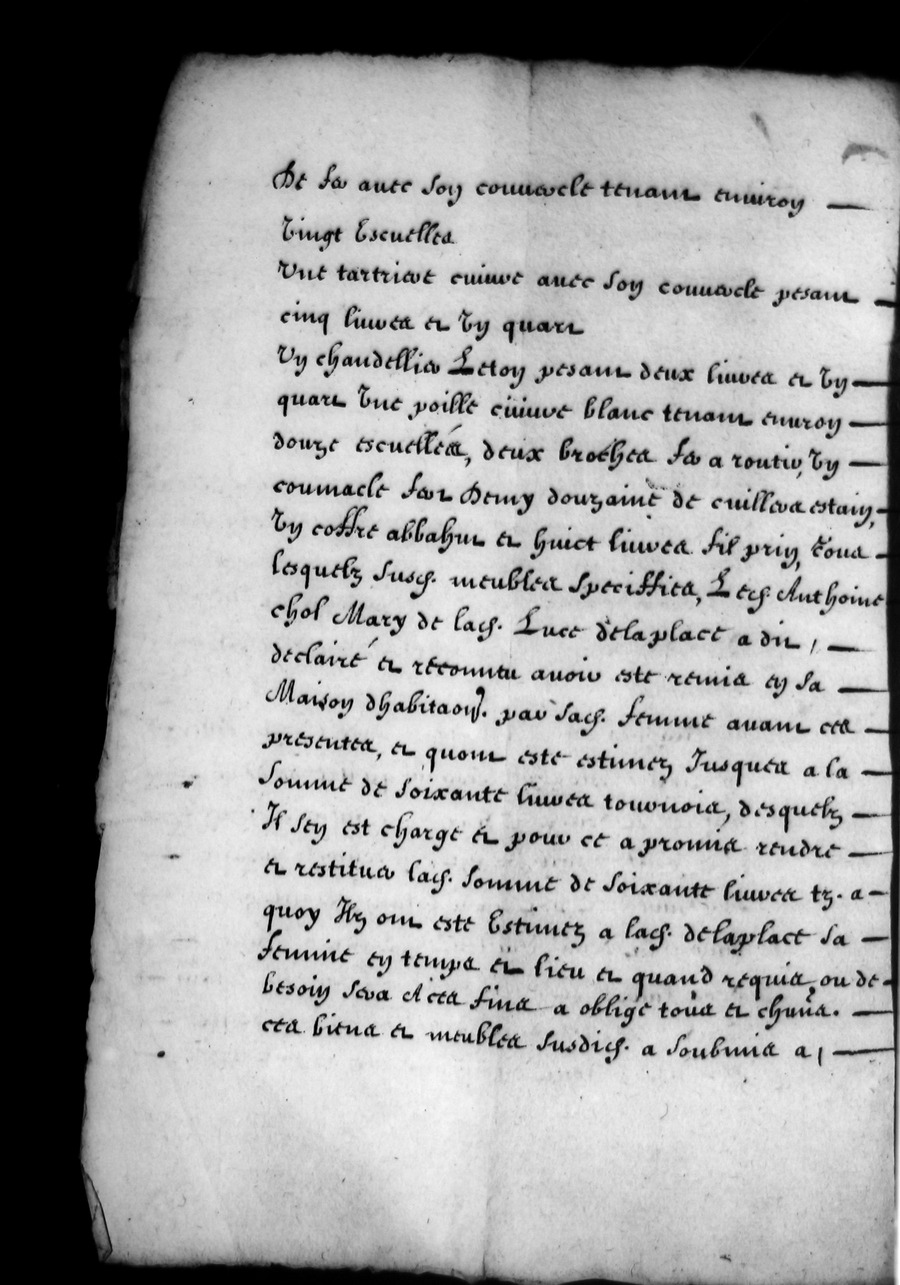 De fer avec son couvercle tenant environ
vingt escuelles
Une tartriere cuivre avec son couvercle pesant
cinq livres et un quart
Un chandellier Leton pesant deux livres et un
quart une poille cuivre blanc tenant environ
douze escuelles, deux broches fer a routir, un
coumacle fert demy douzaine de cuilleres estain,
un coffre abbahut et huict livres fil prin, tous
lesquelz susd. meubles speciffies, Led. Anthoine
chol Mary de lad. Luce delaplace a dit,
declairé et reconnu avoir este remis en sa
Maison dhabitaon. par sad. femme avant ces
presentes, et quont este estimez Jusques a la
somme de soixante livres tournois, desquelz
Il sen est charge et pour ce a promis rendre
et restituer lad. somme de soixante livres tz. a
quoy Ilz ont este Estimez a lad. delaplace sa
femme en temps et lieu et quand requis, ou de
besoin sera A ces fins a oblige tous et chuns.
ces biens et meubles susdid. a soubmis a,